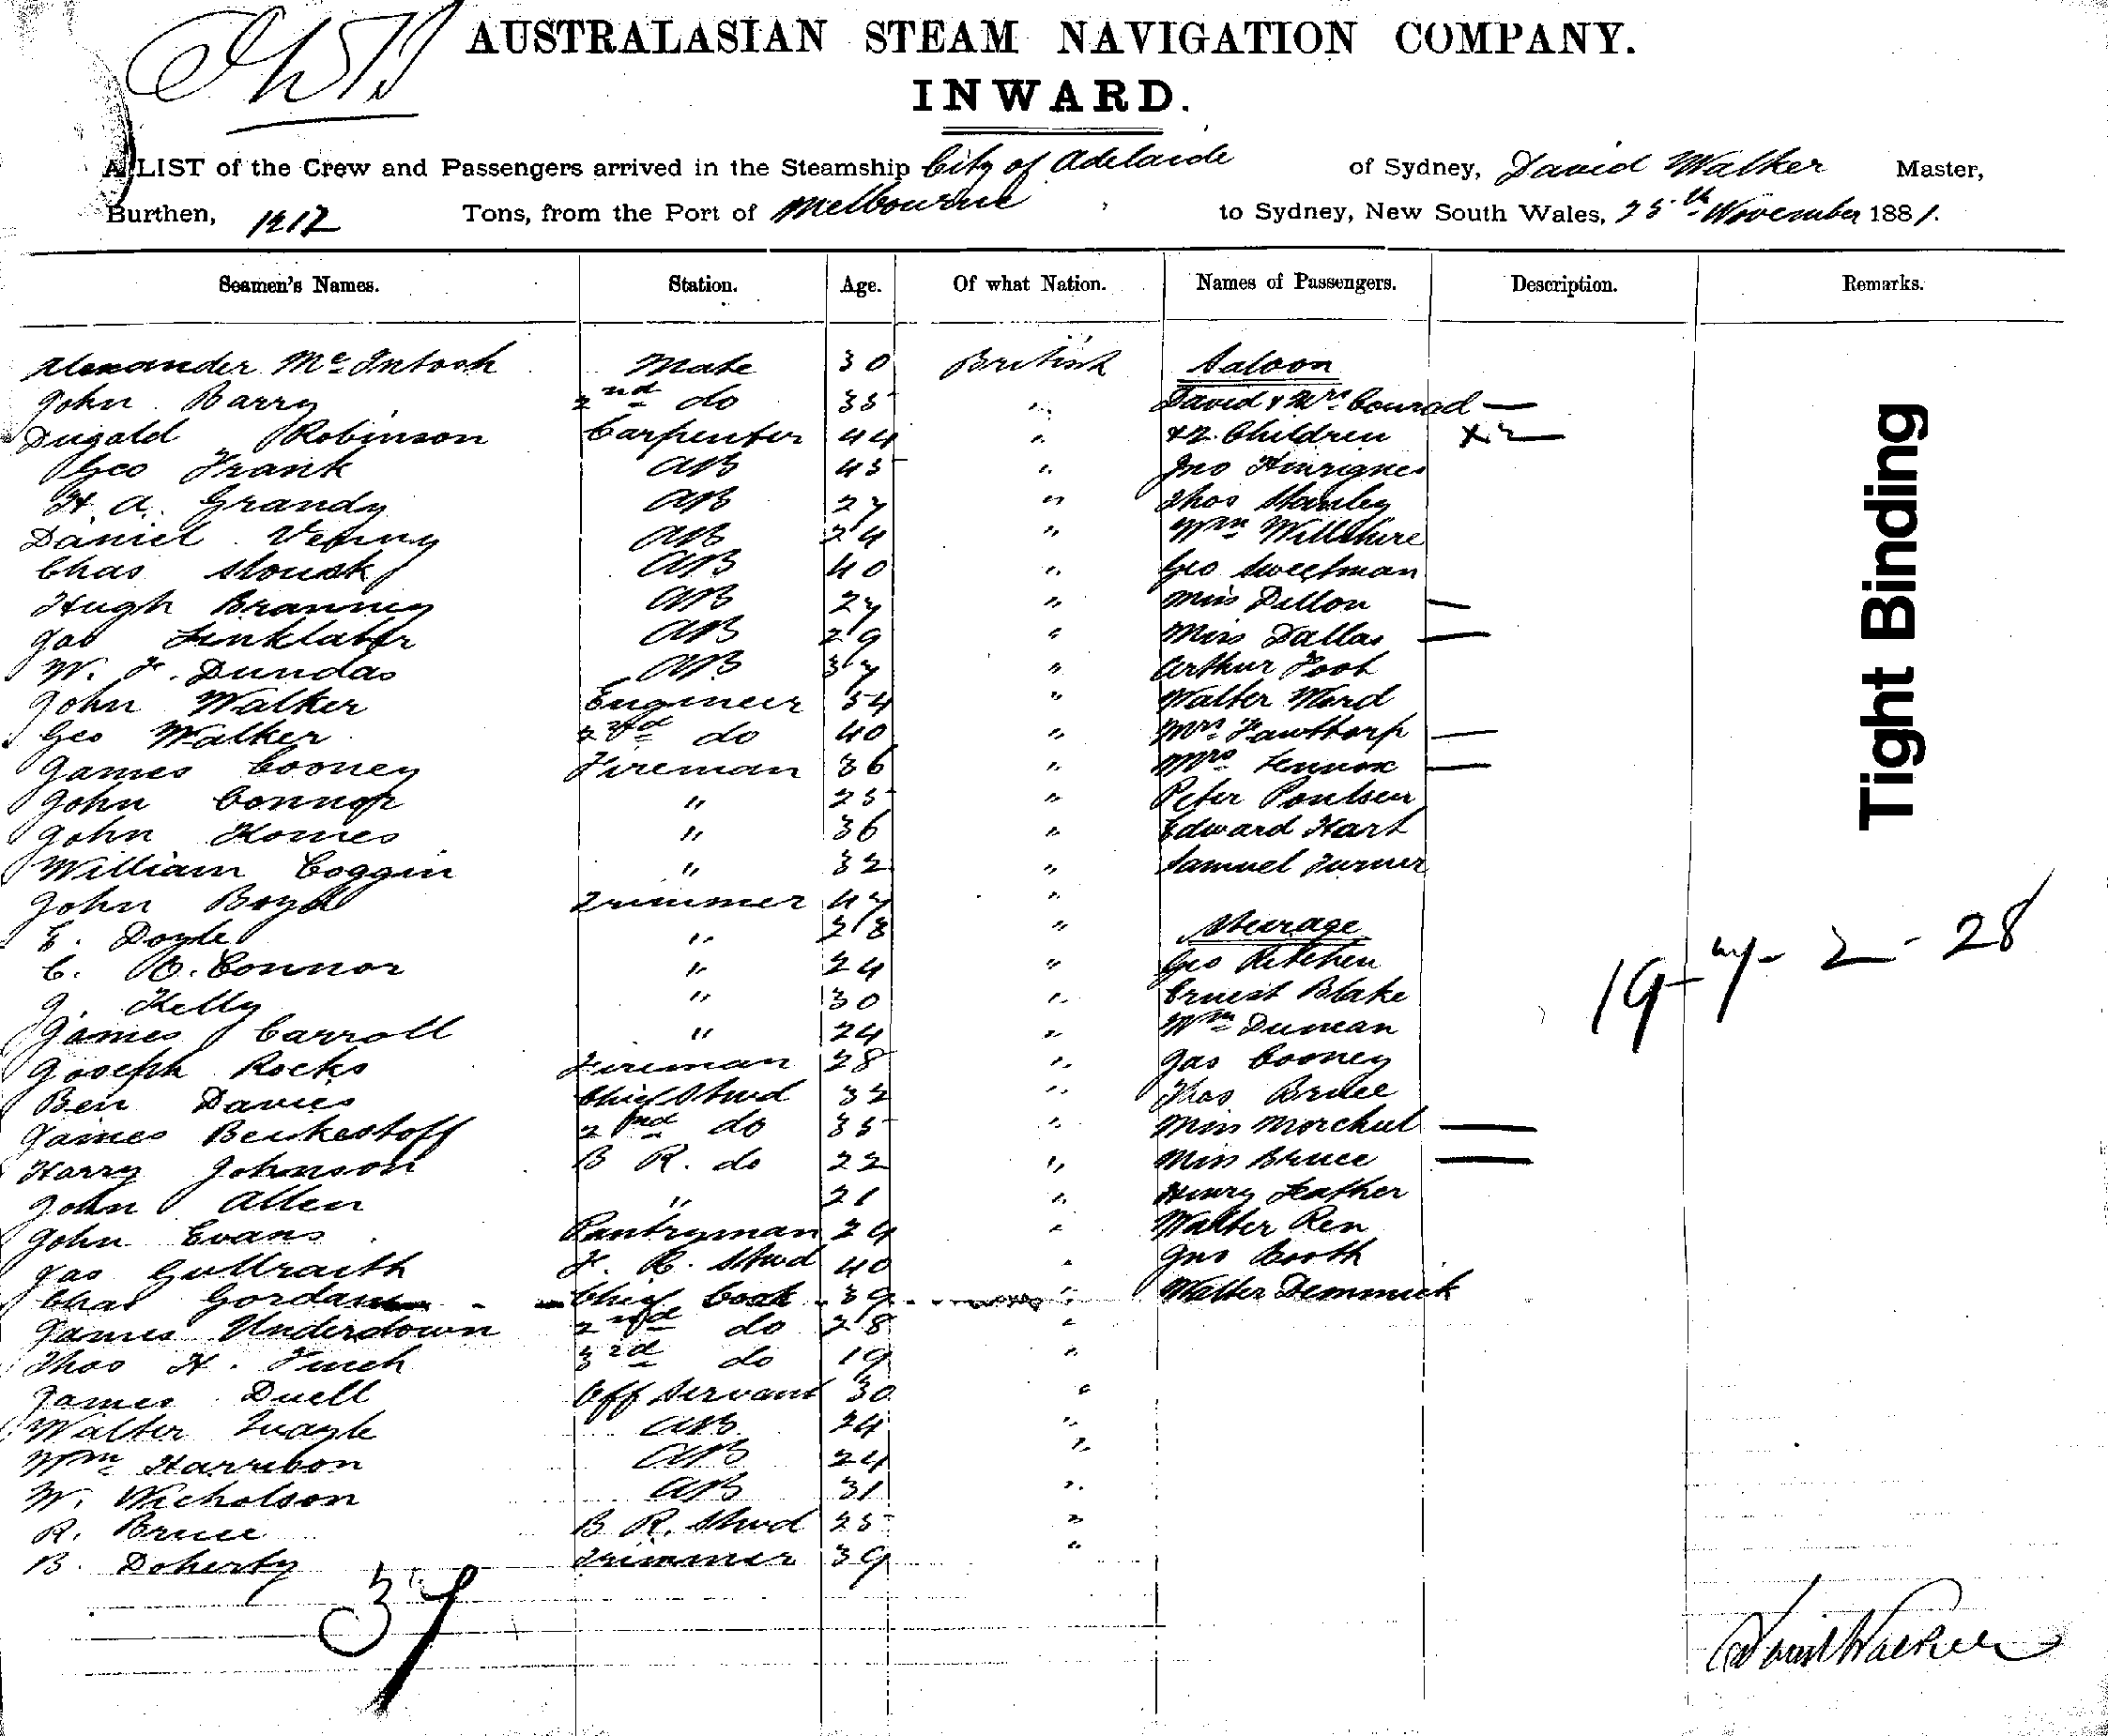 AUSTRALASIAN STEAM NAVIGATION COMPANY.
INWARD.
A LIST of the Crew and Passengers arrived in the Steamship City of Adelaide of Sydney, David Walker Master,
Burthen, 1212 Tons, from the Port of Melbourne to Sydney, New South Wales, 25th November 1881.
Seamen's Names. Station. Age. Of what Nation. Names of Passengers. Description. Remarks.
Alexander McIntosh Mate 30 British Saloon
John Barry 2nd do 35 " David & Mrs Conrad —
Dugald Robinson Carpenter 44 " & 2 Children x 2 —
Geo Frank AB 45 " Jno Henriques
H. A. Grandy AB 27 " Thos Stanley
Daniel AB 24 " Wm Willshire
Chas AB 40 " Geo Sweetman
Hugh Branney AB 27 " Miss Dillon —
Jas Linklater AB 29 " Miss Dallas —
W. F. Dundas AB 37 " Arthur Foot
John Walker Engineer 54 " Walter Ward
Geo Walker 2nd do 40 " Mrs Fawthorp —
James Cooney Fireman 36 " Mrs Lennox —
John Connor " 25 " Peter Poulsen
John Homes " 36 " Edward Hart
William Coggin " 32 " Samuel Turner
John Boyd Trimmer 47 "
E. Doyle " 28 " Steerage
C. O.Connor " 24 " Geo Kitchen
J. Kelly " 30 " Ernest Blake
James Carroll " 24 " Wm Duncan
Joseph Rocks Fireman 28 " Jas Cooney
Ben Davies Chief Stwd 32 " Thos Bruce
James 2nd do 35 " Miss Morchul —
Harry Johnson B R. do 22 " Miss Bruce —
John Allen " 21 " Henry Leather
John Evans Pantryman 24 " Walter Ren
Jas Gullraith F. C. Stwd 40 " Jno Booth
Chas Gordan Chief Cook 39 " Walter Demmick
James Underdown 2nd do 28 "
Thos H. Finch 3rd do 19 "
James Duell Off Servant 30 "
Walter Quayle AB 24 "
Wm Harrison AB 24 "
W. Nicholson AB 31 "
R. Bruce B R. Stwd 25 "
B. Doherty Trimmer 39 "
37
19 - 2 - 28
David Walker
Tight Binding